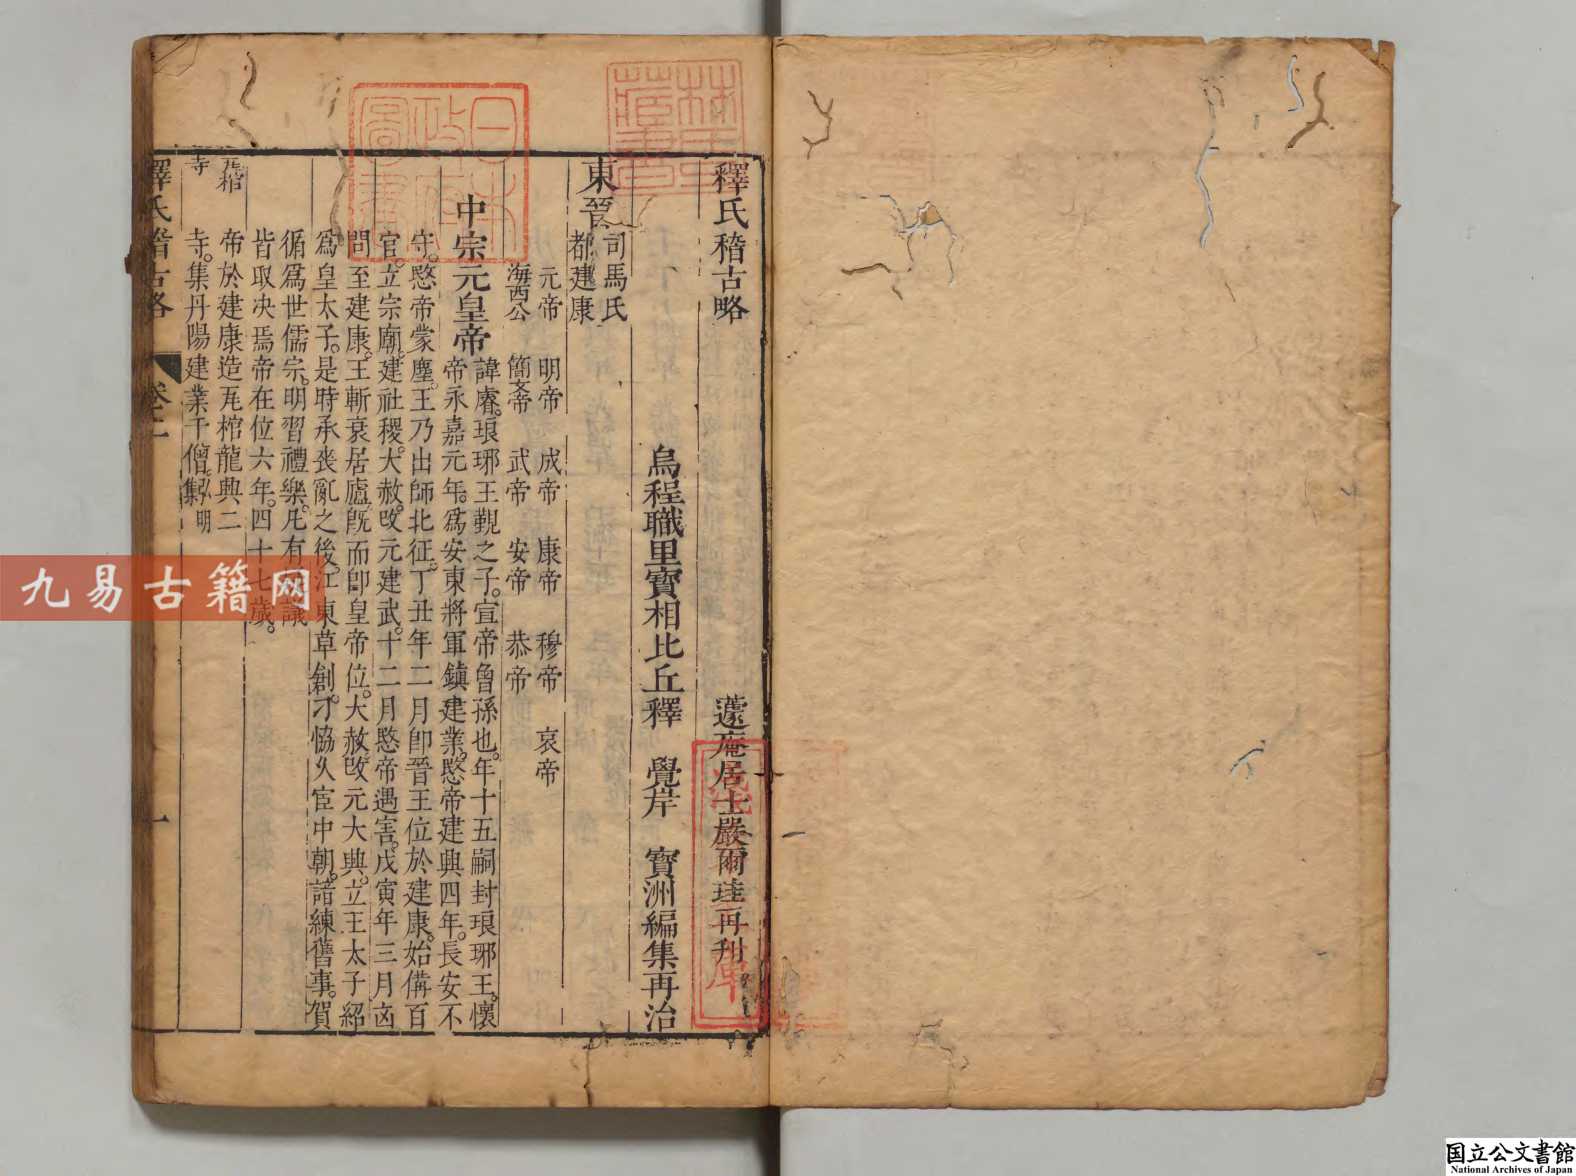 釋氏稽古略　　　　　　　　　　　　居士嚴爾珪再刊
烏程職里寶相比丘釋　覺岸　寶洲編集再治
東晉
司馬氏
都建康
元帝　明帝　成帝　康帝　穆帝　哀帝
海西公　簡文帝　武帝　安帝　恭帝
中宗元皇帝
諱睿。琅琊王覲之子。宣帝曾孫也。年十五嗣封琅琊王。懷
帝永嘉元年。爲安東將軍鎮建業。愍帝建興四年。長安不
守。愍帝蒙塵。王乃出師北征。丁丑年二月卽晉王位於建康。始備百
官。立宗廟。建社稷。大赦。改元建武。十二月愍帝遇害。戊寅年三月凶
問至建康。王斬衰居廬。旣而卽皇帝位。大赦。改元大興。立王太子紹
爲皇太子。是時承喪亂之後。江東草創。刁協久宦中朝。諳練舊事。賀
循爲世儒宗。明習禮樂。凡有議
皆取决焉。帝在位六年。四十七歲。
瓦棺
寺
帝於建康造瓦棺龍興二
寺。集丹陽建業千僧。弘明
集
釋氏稽古略　卷二　一
日本政府圖書
林氏藏書
淺草文庫
九易古籍网
国立公文書館
National Archives of Japan